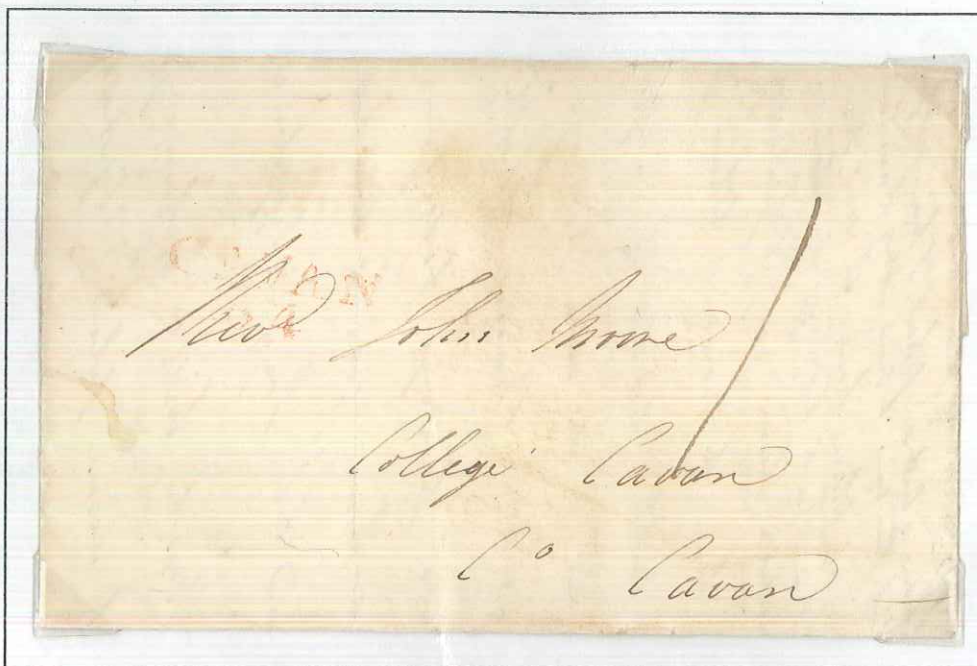 CAVAN
Revd John Moore
1
College Cavan
Co Cavan